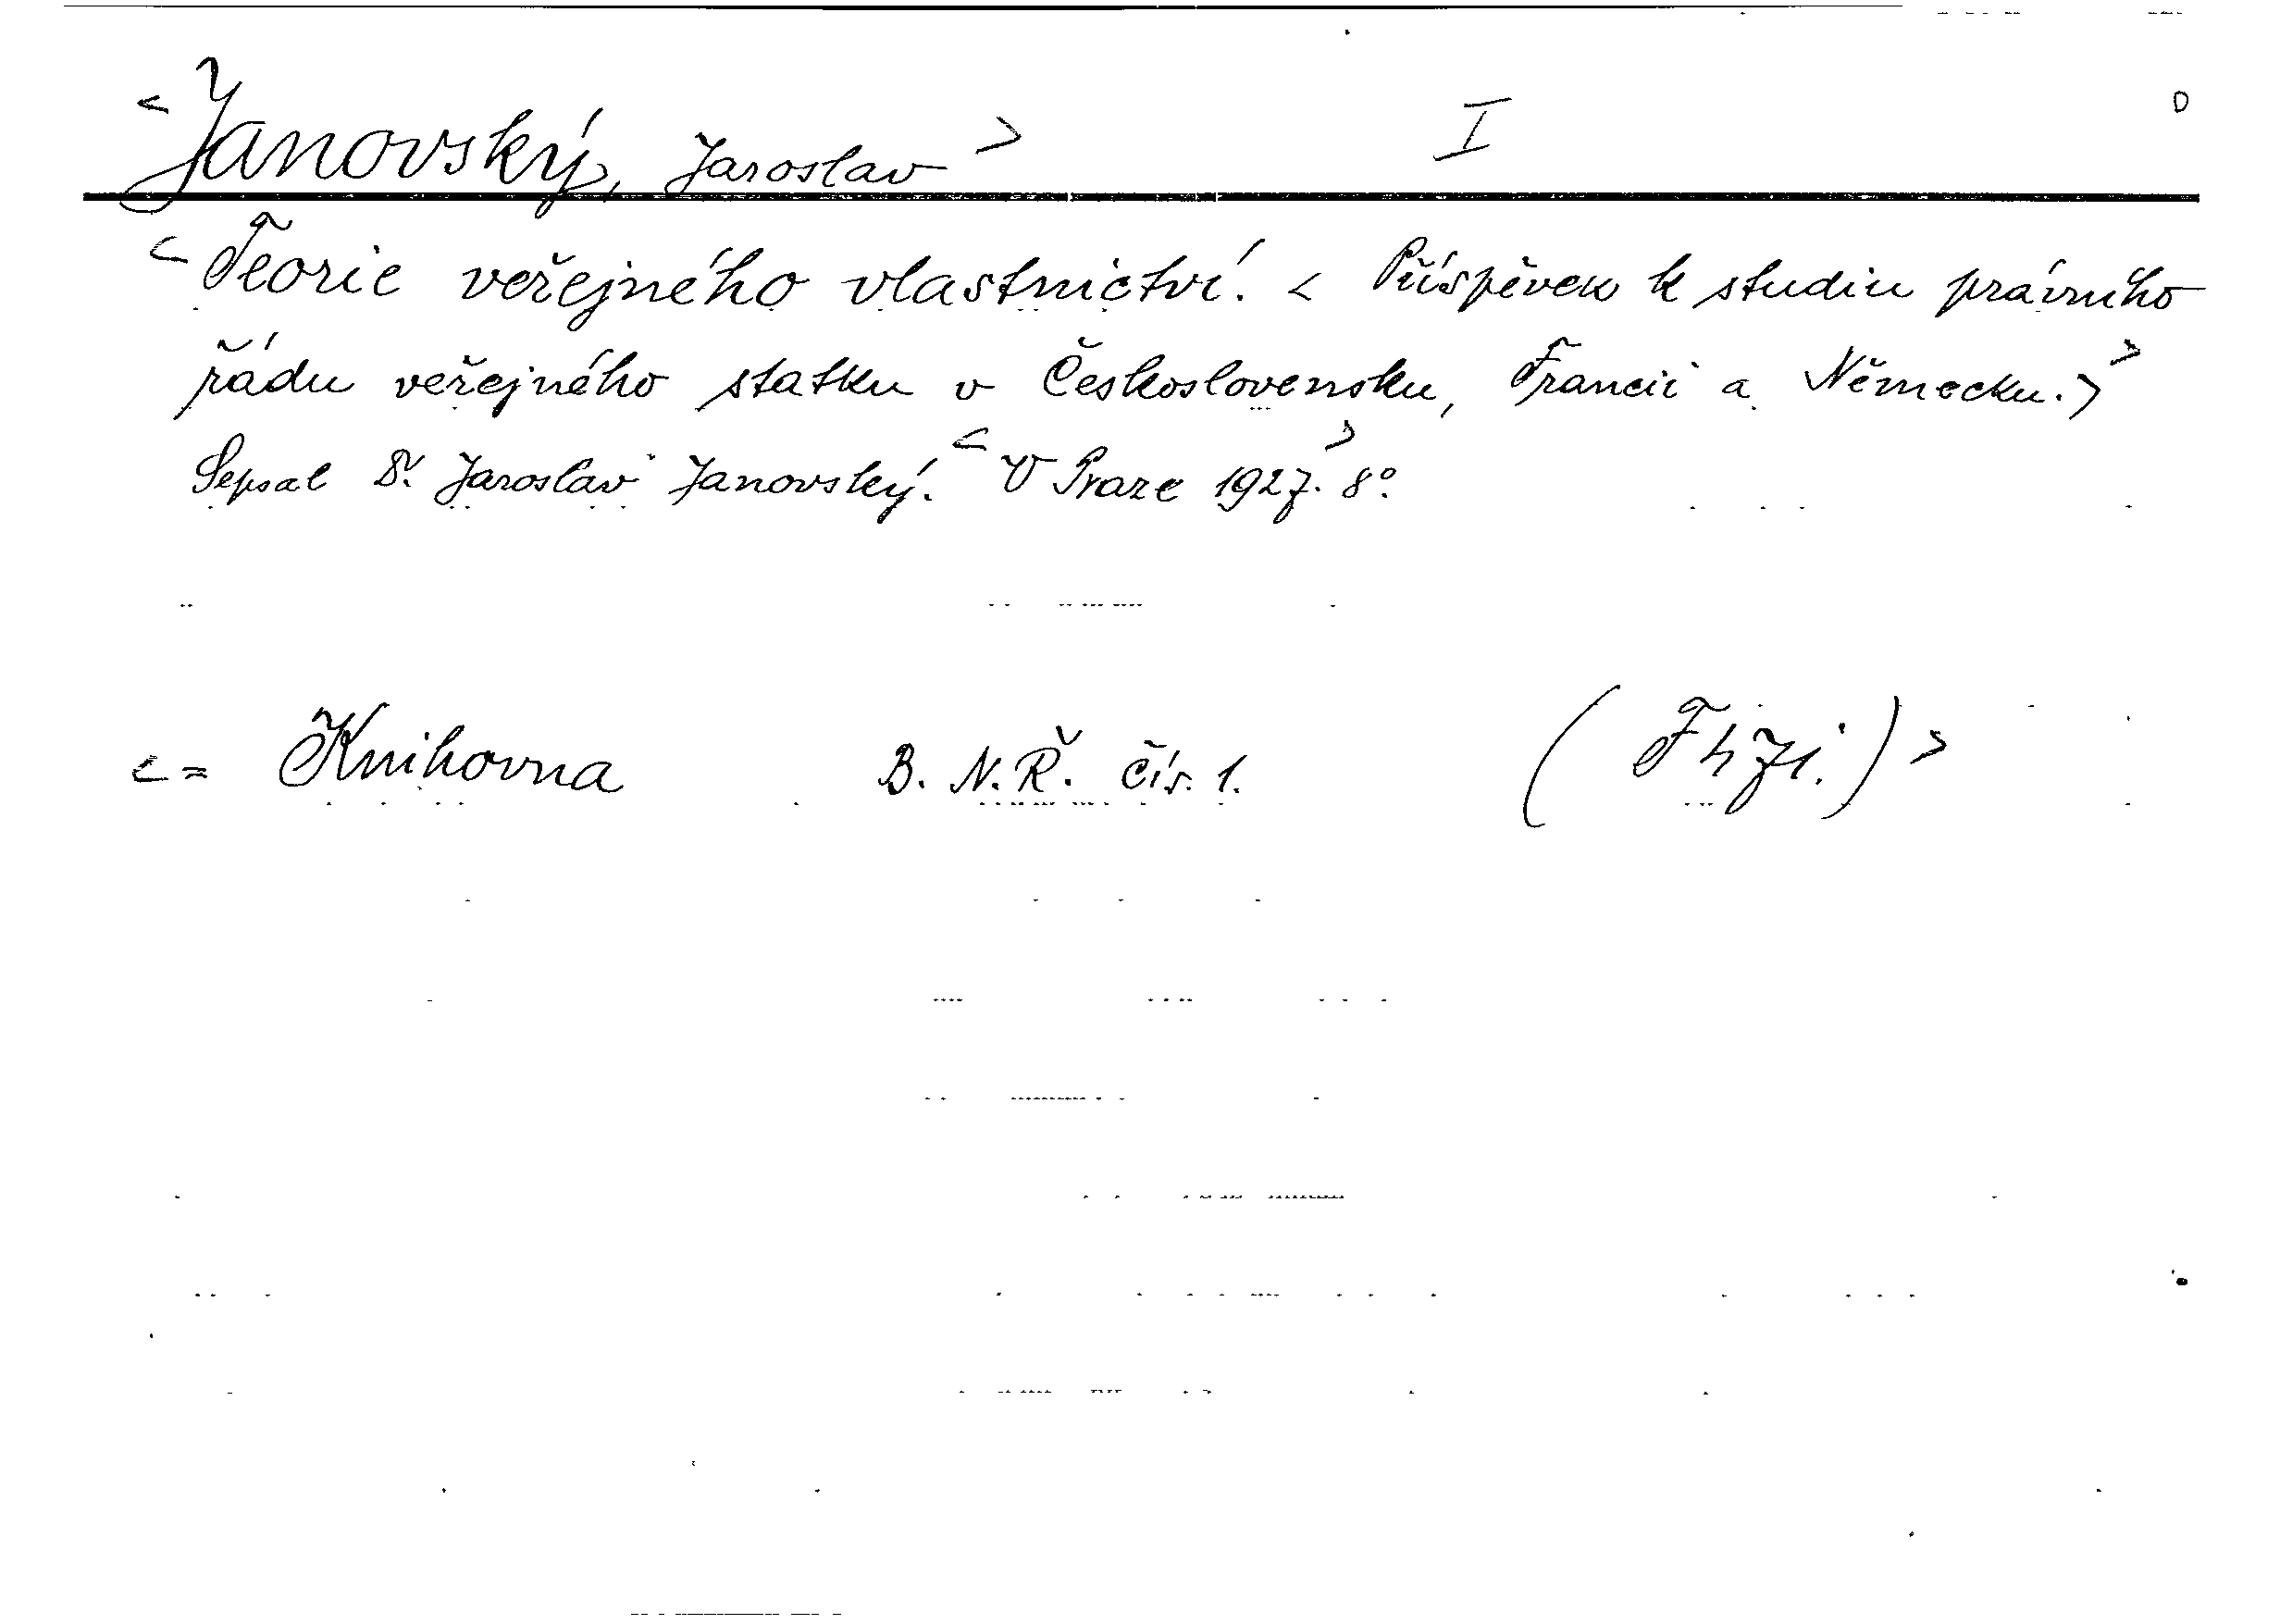 <Janovský, Jaroslav> I
<Teorie veřejného vlastnictví. < Příspěvek k studiu právního
řádu veřejného statku v Československu, Francii a Německu.>>
Sepsal Dr. Jaroslav Janovský. <V Praze 1927.> 8°.
<= Knihovna B. N. Ř. čís. 1.